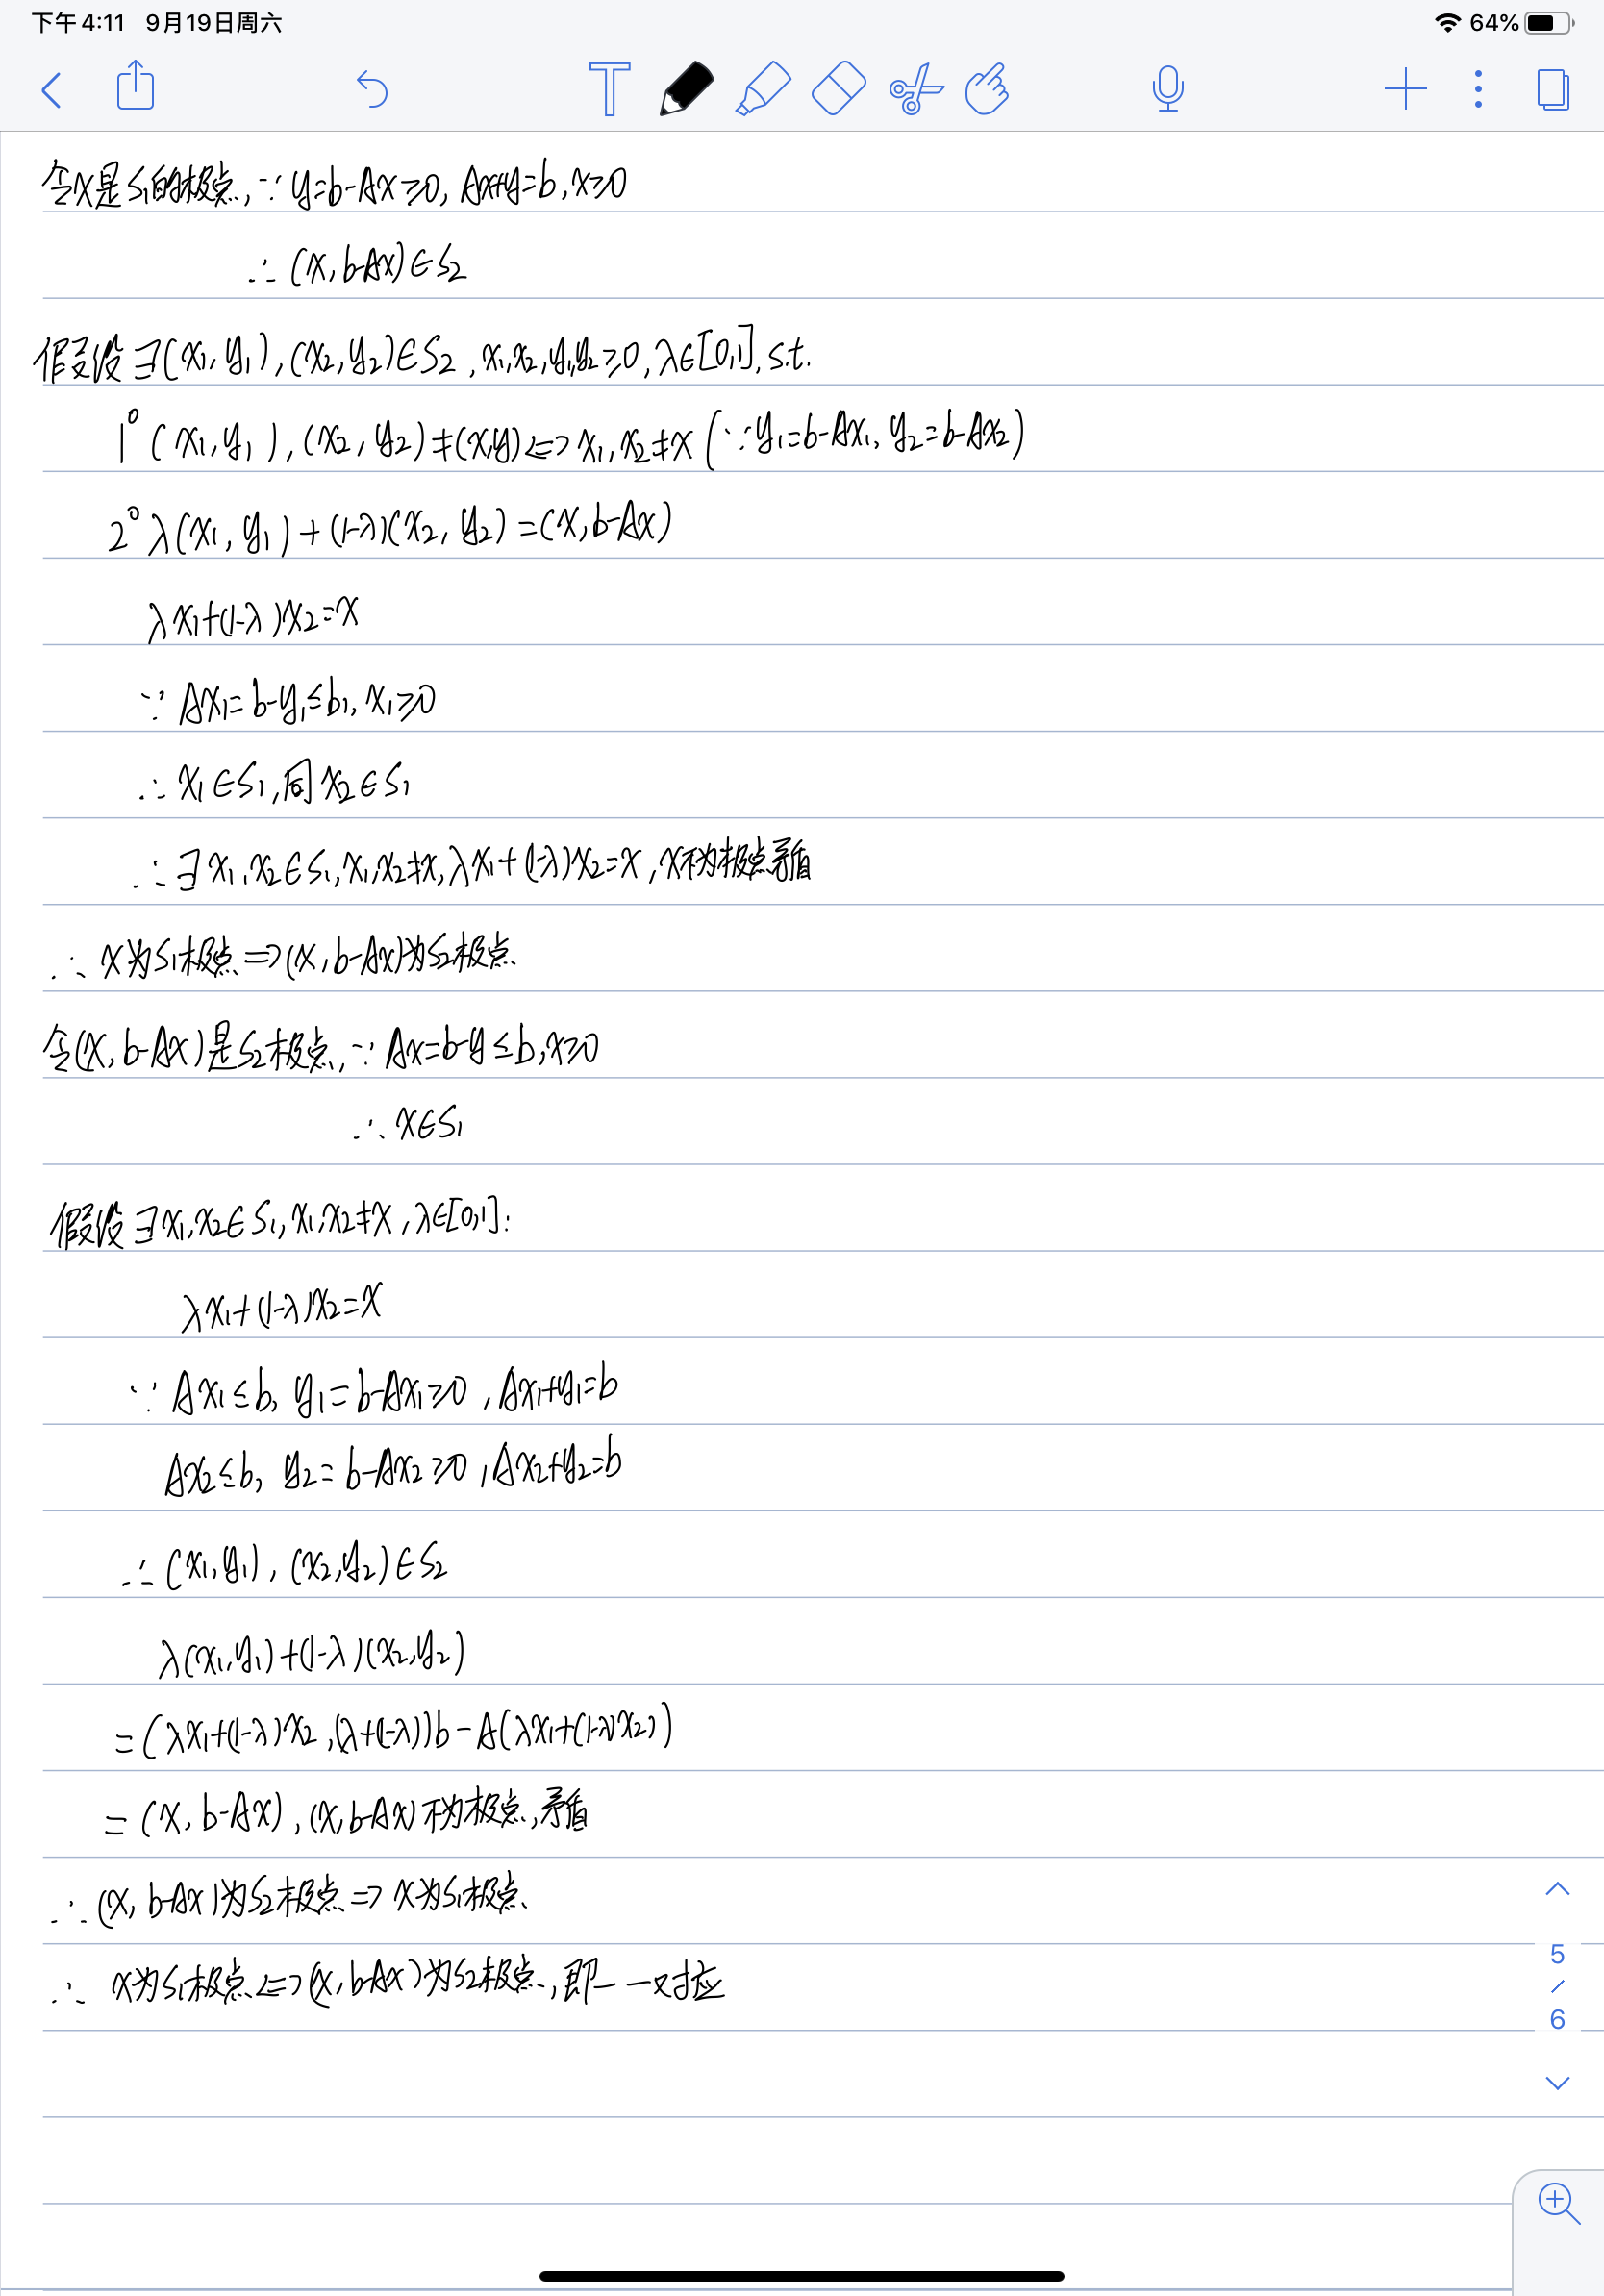 下午4:11 9月19日周六 64%
T
令x是S₁的极点,∵y=b-Ax≥0, Ax+y=b, x≥0
∴(x, b-Ax)∈S₂
假设∃(x₁, y₁), (x₂, y₂)∈S₂, x₁,x₂,y₁,y₂≥0, λ∈[0,1], s.t.
1° (x₁, y₁), (x₂, y₂)≠(x,y)<=>x₁, x₂≠x (∵y₁=b-Ax₁, y₂=b-Ax₂)
2° λ(x₁, y₁)+(1-λ)(x₂, y₂)=(x, b-Ax)
λx₁+(1-λ)x₂=x
∵Ax₁=b-y₁≤b₁, x₁≥0
∴x₁∈S₁,同x₂∈S₁
∴∃x₁,x₂∈S₁,x₁,x₂≠x,λx₁+(1-λ)x₂=x,x不为极点矛盾
∴x为S₁极点=>(x, b-Ax)为S₂极点
令(x, b-Ax)是S₂极点,∵Ax=b-y≤b,x≥0
∴x∈S₁
假设∃x₁,x₂∈S₁,x₁,x₂≠x,λ∈[0,1]:
λx₁+(1-λ)x₂=x
∵Ax₁≤b, y₁=b-Ax₁≥0, Ax₁+y₁=b
Ax₂≤b, y₂=b-Ax₂≥0, Ax₂+y₂=b
∴(x₁,y₁), (x₂,y₂)∈S₂
λ(x₁,y₁)+(1-λ)(x₂,y₂)
=(λx₁+(1-λ)x₂,(λ+(1-λ))b-A(λx₁+(1-λ)x₂))
=(x, b-Ax), (x, b-Ax)不为极点,矛盾
∴(x, b-Ax)为S₂极点=>x为S₁极点
∴x为S₁极点<=>(x, b-Ax)为S₂极点,即一一对应
5
/
6